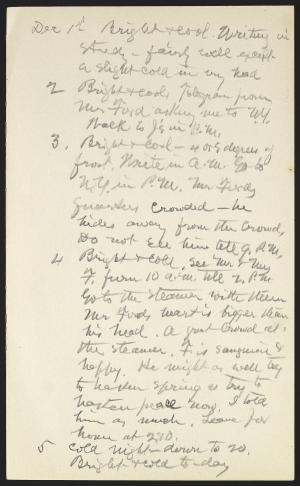 Dec 1st Bright & cool. Writing in
study – fairly well except
a slight cold in my head
2 Bright & cool, Telegram from
Mr Ford asking me to N.Y.
Walk to J's in P.M.
3. Bright & cool – 4 or 5 degrees of
frost. Write in A.M. Go to
N.Y. in P.M. Mr Fords
quarters crowded – he
hides away from the crowd,
Do not see him till 9. P.M.
4 Bright & cold. See Mr & Mrs
F. from 10 a.m. till 2, P.M
Go to the steamer with them
Mr Fords heart is bigger than
his head. A great crowd at
the steamer. F. is sanguine &
happy. He might as well try
to hasten spring as try to
hasten peace now. I told
him as much. Leave for
home at 2.30.
5 Cold night – down to 20.
Bright & cold to-day